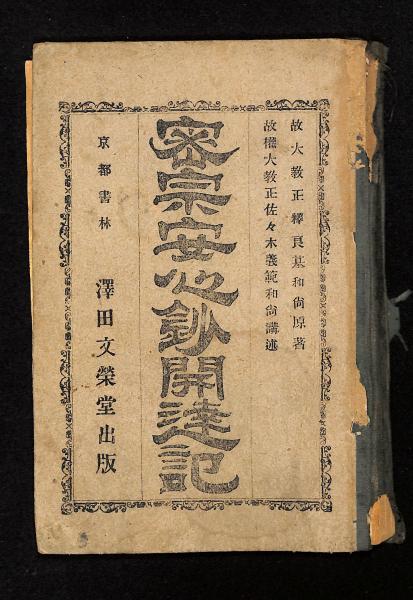 故大教正釋良基和尙原著
故權大教正佐々木義範和尙講述
密宗安心鈔開達記
京都書林
澤田文榮堂出版